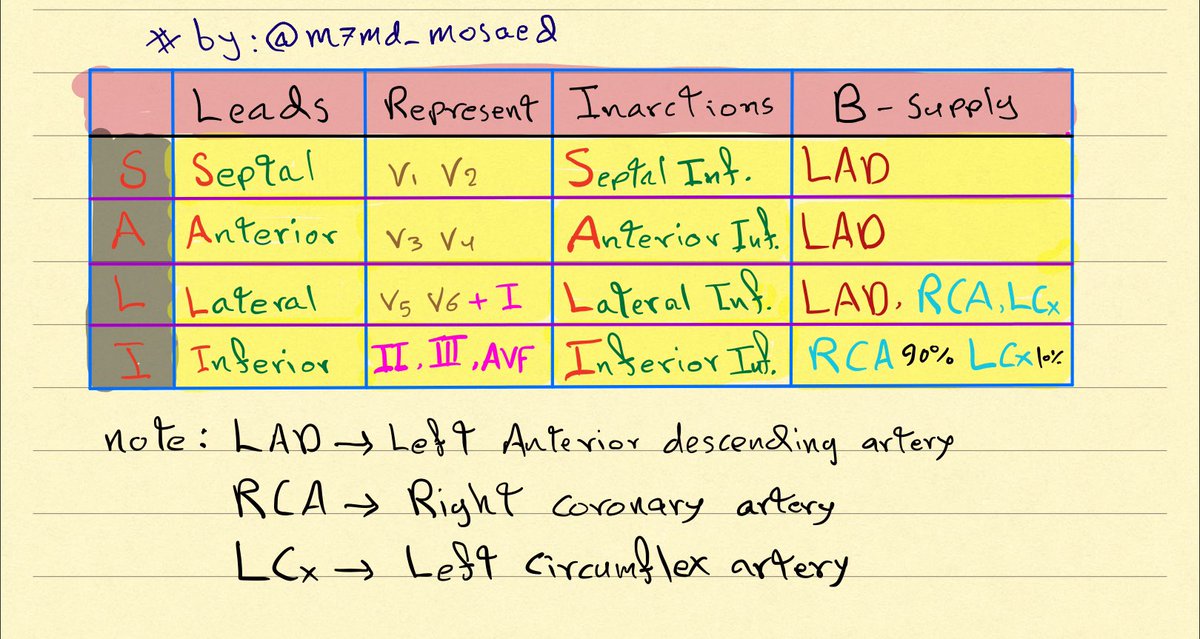 # by:@m7md_mosaed
Leads Represent Inarctions B-supply
S Septal V1 V2 Septal Inf. LAD
A Anterior V3 V4 Anterior Inf. LAD
L Lateral V5 V6 + I Lateral Inf. LAD, RCA, LCx
I Inferior II, III, AVF Inferior Inf. RCA 90% LCx 10%
note: LAD → Left Anterior descending artery
RCA → Right coronary artery
LCx → Left circumflex artery